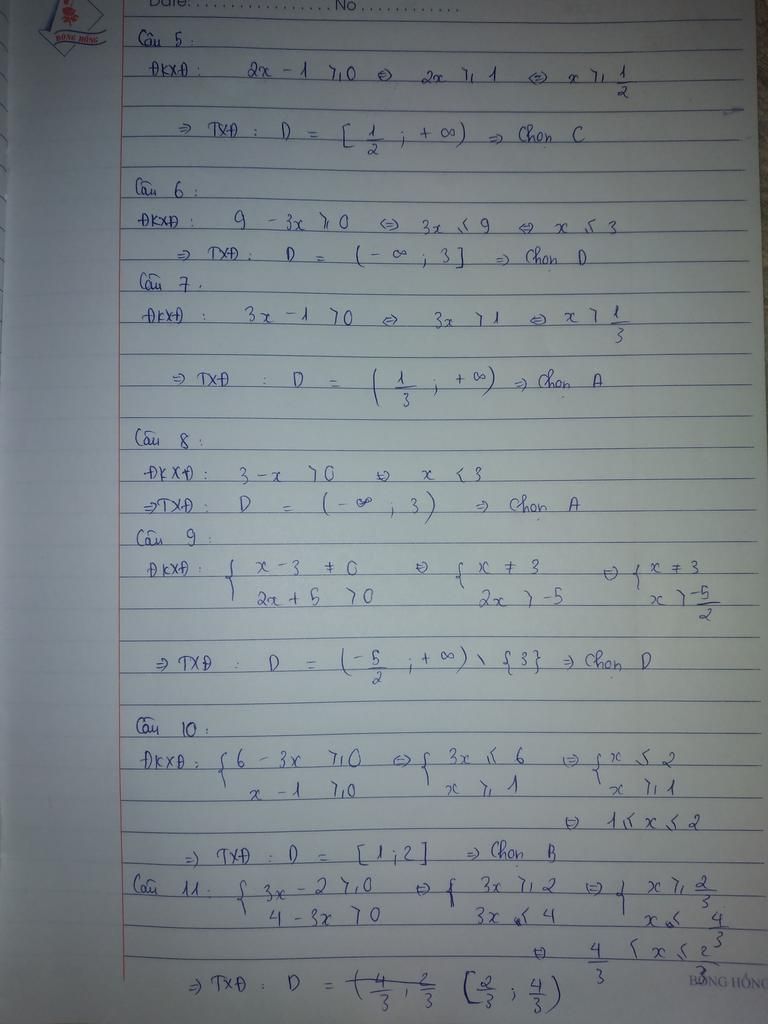 Date: ................ No ............
BỐNG HỒNG
Câu 5:
ĐKXĐ: 2x - 1 ≥ 0 ⇔ 2x ≥ 1 ⇔ x ≥ 1/2
⇒ TXĐ: D = [1/2; +∞) ⇒ Chọn C
Câu 6:
ĐKXĐ: 9 - 3x ≥ 0 ⇔ 3x ≤ 9 ⇔ x ≤ 3
⇒ TXĐ: D = (-∞; 3] ⇒ Chọn D
Câu 7.
ĐKXĐ: 3x - 1 > 0 ⇔ 3x > 1 ⇔ x > 1/3
⇒ TXĐ: D = (1/3; +∞) ⇒ Chọn A
Câu 8:
ĐKXĐ: 3 - x > 0 ⇔ x < 3
⇒ TXĐ: D = (-∞; 3) ⇒ Chọn A
Câu 9:
ĐKXĐ: { x - 3 ≠ 0 ⇔ { x ≠ 3 ⇔ { x ≠ 3
2x + 5 > 0 2x > -5 x > -5/2
⇒ TXĐ: D = (-5/2; +∞) \ {3} ⇒ Chọn D
Câu 10:
ĐKXĐ: { 6 - 3x ≥ 0 ⇔ { 3x ≤ 6 ⇔ { x ≤ 2
x - 1 ≥ 0 x ≥ 1 x ≥ 1
⇔ 1 ≤ x ≤ 2
⇒ TXĐ: D = [1; 2] ⇒ Chọn B
Câu 11: { 3x - 2 ≥ 0 ⇔ { 3x ≥ 2 ⇔ { x ≥ 2/3
4 - 3x > 0 3x < 4 x < 4/3
⇔ 4/3 < x ≤ 2/3
⇒ TXĐ: D = (4/3; 2/3 [2/3; 4/3)
BỐNG HỒNG